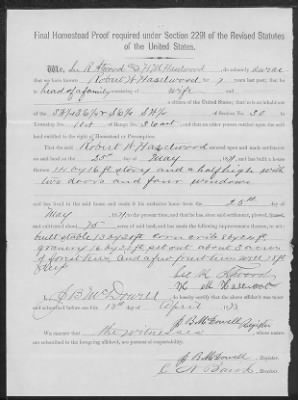 Final Homestead Proof required under Section 2291 of the Revised Statutes
of the United States.
We, Lee R Atwood & H. H. Hazelwood do solemnly swear
that we have known Robert H. Hazelwood for 7 years last past; that he
is head of a family consisting of wife
a citizen of the United States; that he is an inhabitant
of the of Section No. 20 in
Township No. of Range No. 3 East, and that no other person resides upon the said
land entitled to the right of Homestead or Pre-emption.
That the said Robert H Hazelwood entered upon and made settlement
on said land on the 25th day of May, 187, and has built a house
thereon 14 by 16 ft story and a half high with
two doors and four windows
and has lived in the said house and made it his exclusive home from the 25th day of
May, 187 to the present time, and that he has, since said settlement, plowed,
and cultivated 75 acres of said land, and has made the following improvements thereon, to wit:
built stable 12 by 20 ft corn crib 8 by 20 ft
granary 16 by 36 ft set out about 2 acres
of forest trees and a few fruit trees well 18 ft
deep
Lee R Atwood
I, J. B. McDowell do hereby certify that the above affidavit was taken
and subscribed before me this day of April 187
J. B. McDowell Register
We certify that the witnesses
whose names are subscribed to the foregoing affidavit, are persons of respectability.
J. B. McDowell, Register.
, Receiver.